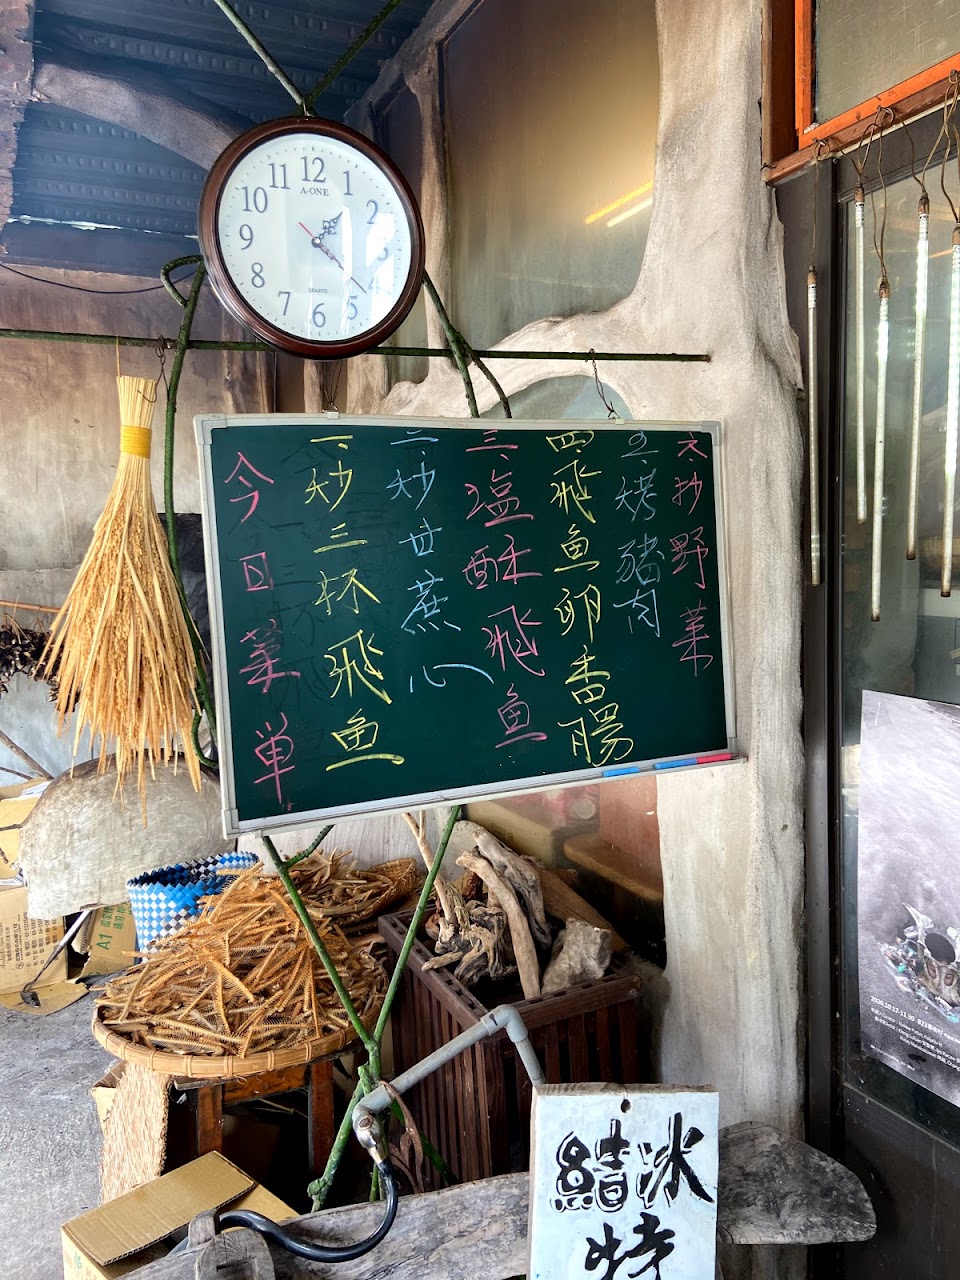 12
1
2
3
4
5
6
7
8
9
10
11
A-ONE
QUARTZ
今日菜単
一、炒三杯飛魚
二、炒甘蔗心
三、塩酥飛魚
四、飛魚卵香腸
五、烤豬肉
六、抄野菜
結冰
特
A1
2020.10.17-11.30